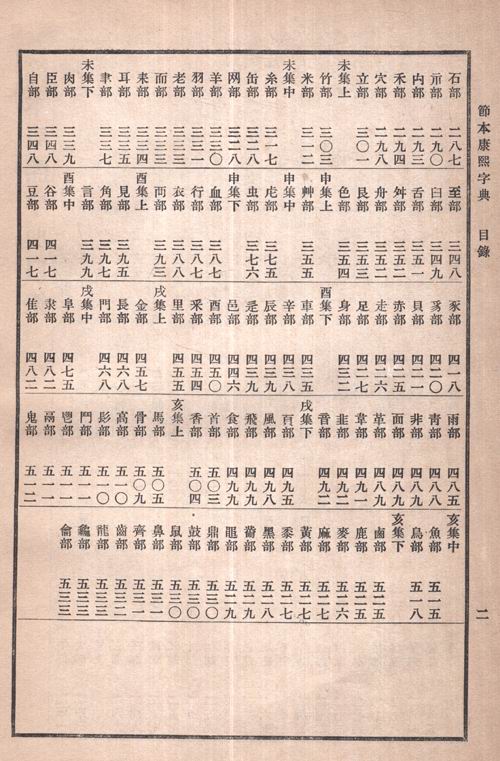 節本康熙字典　目錄
石部　二八七
示部　二九〇
内部　二九三
禾部　二九四
穴部　二九八
立部　三〇一
未集上
竹部　三〇三
米部　三一二
未集中
糸部　三一七
缶部　三二八
网部　三二八
羊部　三三〇
羽部　三三一
老部　三三三
而部　三三三
耒部　三三四
耳部　三三五
聿部　三三七
未集下
肉部　三三九
臣部　三四八
自部　三四八
至部　三四八
臼部　三四九
舌部　三五一
舛部　三五二
舟部　三五二
艮部　三五三
色部　三五四
申集上
艸部　三五五
申集中
虍部　三七五
虫部　三七六
申集下
血部　三八七
行部　三八七
衣部　三八八
襾部　三九三
酉集上
見部　三九五
角部　三九七
言部　三九九
酉集中
谷部　四一七
豆部　四一七
豕部　四一八
豸部　四二〇
貝部　四二一
赤部　四二五
走部　四二六
足部　四二七
身部　四三二
酉集下
車部　四三五
辛部　四三八
辰部　四三九
辵部　四三九
邑部　四四六
酉部　四五〇
釆部　四五五
里部　四五五
戌集上
金部　四五七
長部　四六八
門部　四六八
戌集中
阜部　四七五
隶部　四八二
隹部　四八二
雨部　四八五
靑部　四八八
非部　四八八
面部　四八九
革部　四八九
韋部　四九一
韭部　四九二
音部　四九二
戌集下
頁部　四九五
風部　四九八
飛部　四九九
食部　四九九
首部　五〇三
香部　五〇四
亥集上
馬部　五〇五
骨部　五〇九
高部　五一〇
髟部　五一〇
鬥部　五一一
鬯部　五一一
鬲部　五一一
鬼部　五一二
亥集中
魚部　五一五
鳥部　五一八
亥集下
鹵部　五二五
鹿部　五二五
麥部　五二六
麻部　五二七
黃部　五二七
黍部　五二七
黑部　五二八
黹部　五二九
黽部　五二九
鼎部　五三〇
鼓部　五三〇
鼠部　五三〇
鼻部　五三一
齊部　五三一
齒部　五三二
龍部　五三三
龜部　五三三
龠部　五三三
二